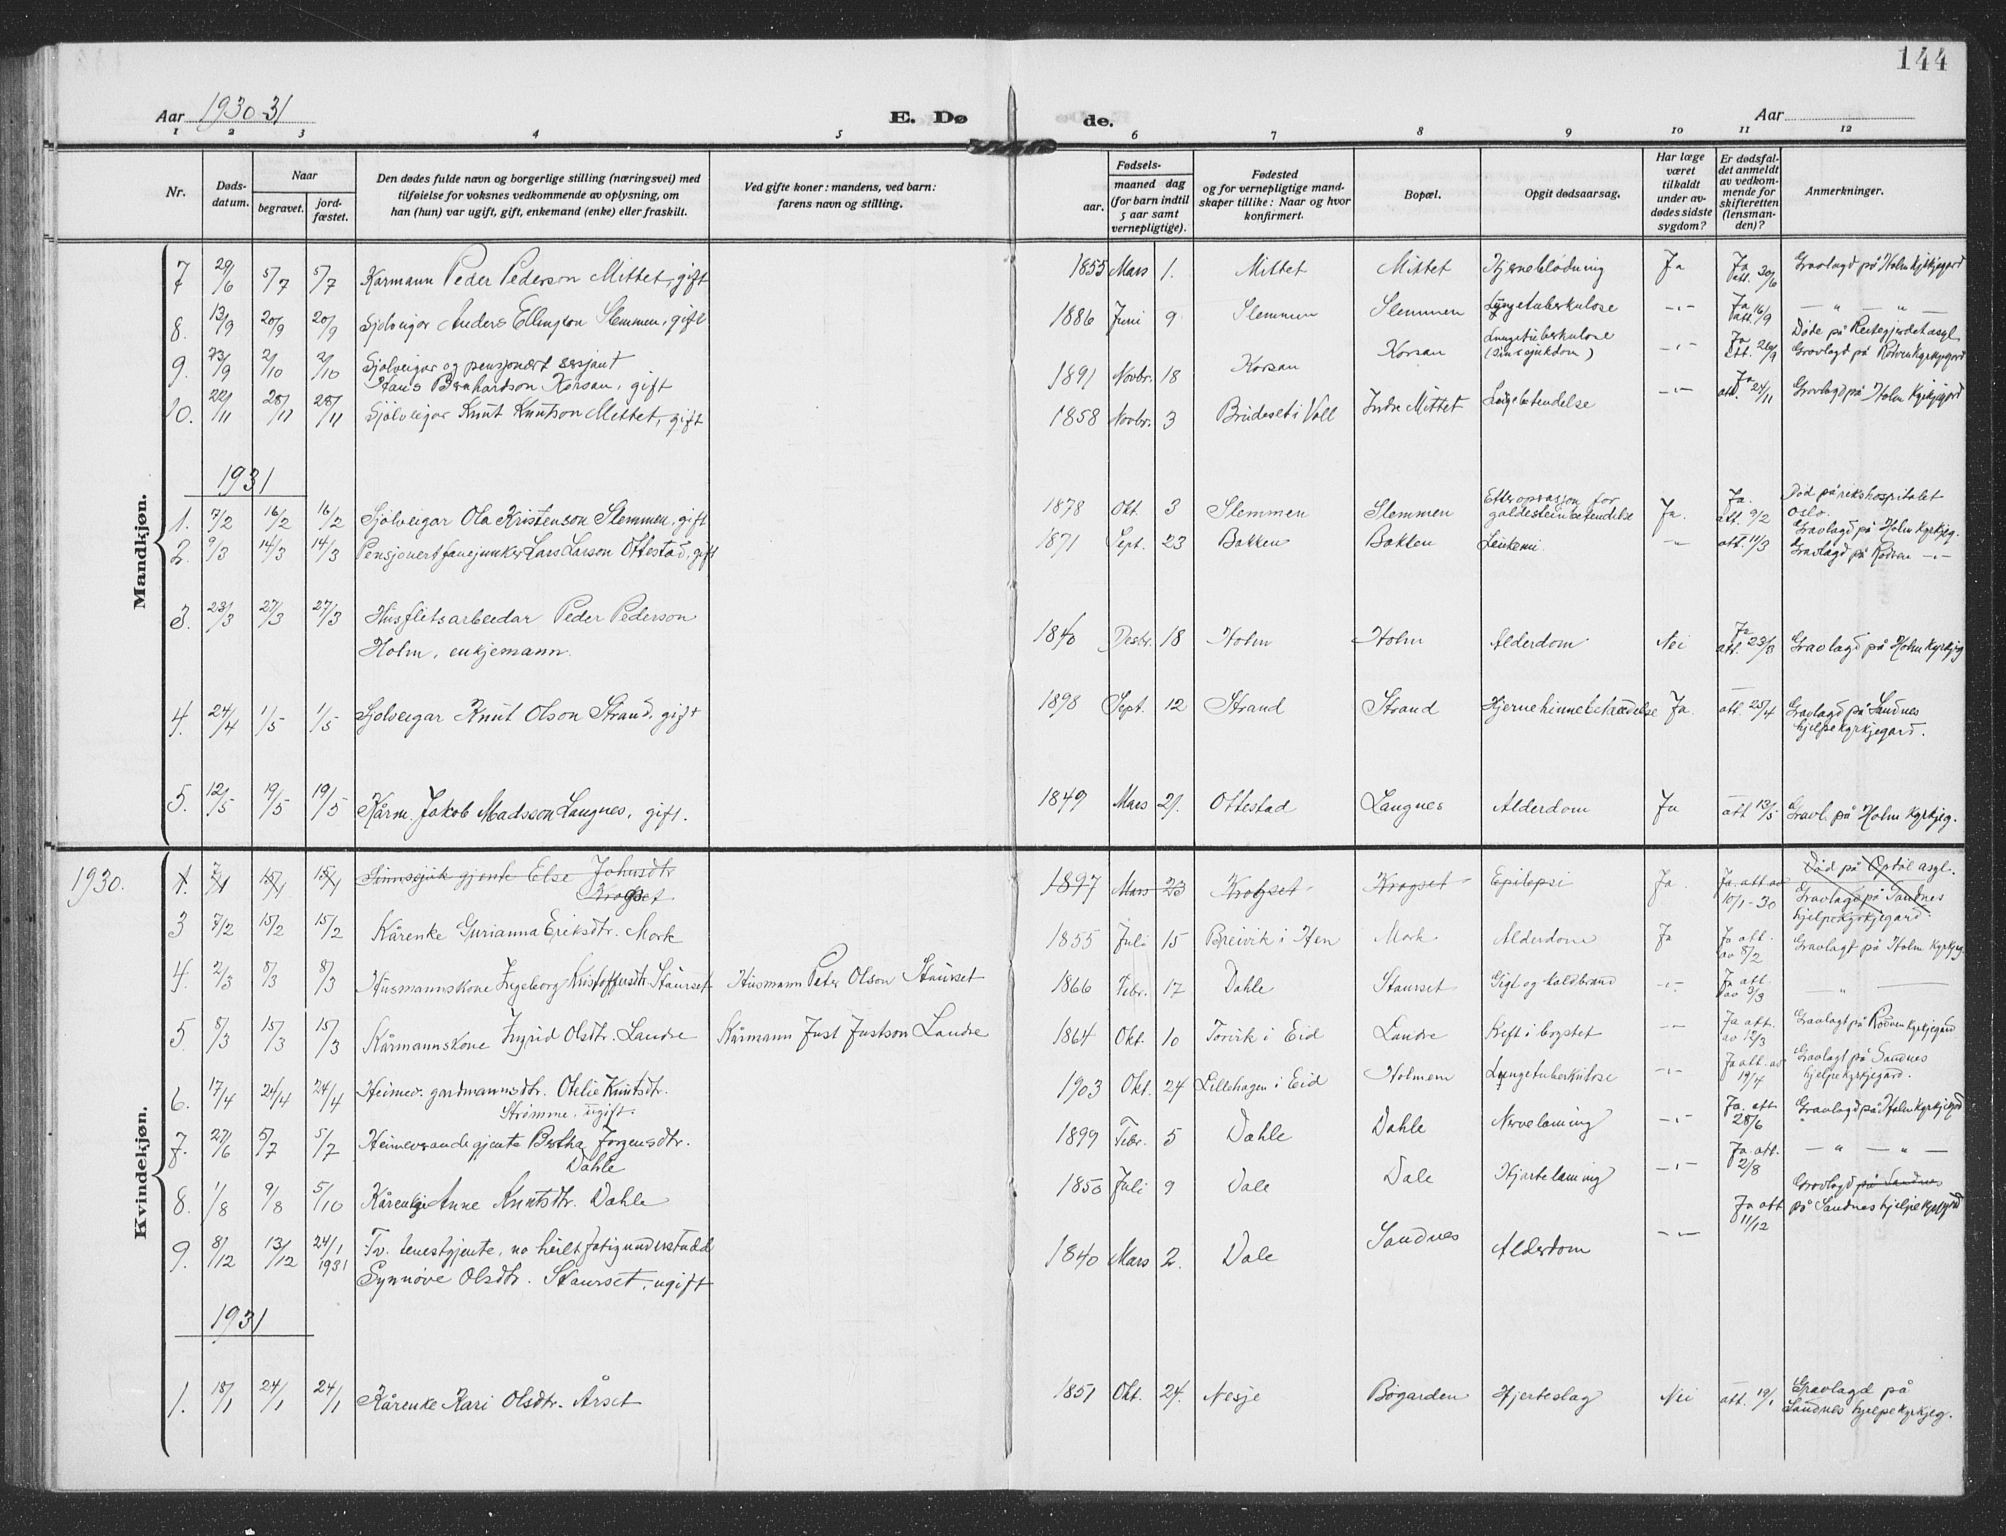 144
Aar 1930-31
E. Dø
de.
Aar
1 2 3 4 5 6 7 8 9 10 11 12
Nr.
Døds-
datum.
Naar
begravet.
jord-
fæstet.
Den dødes fulde navn og borgerlige stilling (næringsvei) med
tilføielse for voksnes vedkommende av oplysning, om
han (hun) var ugift, gift, enkemand (enke) eller fraskilt.
Ved gifte koner: mandens, ved barn:
farens navn og stilling.
Fødsels-
aar.
maaned dag
(for barn indtil
5 aar samt
vernepligtige).
Fødested
og for vernepligtige mand-
skaper tillike: Naar og hvor
konfirmert.
Bopæl.
Opgit dødsaarsag.
Har læge
været
tilkaldt
under av-
dødes sidste
sygdom?
Er dødsfal-
det anmeldt
av vedkom-
mende for
skifteretten
(lensman-
den)?
Anmerkninger.
Mandkjøn.
7 29/6 5/7 5/7 Kårmann Peder Pederson Mittet, gift 1855 Mars 1. Mittet Mittet Hjerneblödning Ja Ja att. 30/6 Gravlagd på Holm kyrkjegard
8. 13/9 20/9 20/9 Sjölveigar Anders Ellingson Slemmen, gift 1886 Juni 9 Slemmen Slemmen Lungetuberkulose -"- Ja att. 16/9 — " — " —
9. 23/9 2/10 2/10 Sjölveigar og pensjonert sersjant
Hans Bernhardson Korsan, gift 1891 Novbr. 18 Korsan Korsan Lungetuberkulose
(Sinnssjukdom) -"- Ja att. 26/9 Døde på Reitegjerdet asyl
Gravlagd på Rödven kyrkjegard
10. 22/11 28/11 28/11 Sjölveigar Knut Knutson Mittet, gift 1858 Novbr. 3 Brudeset i Voll Indre Mittet Lungebetendelse -"- Ja att. 24/11 Gravlagd på Holm kyrkjegard
1931
1. 7/2 16/2 16/2 Sjölveigar Ola Kristenson Slemmen, gift 1878 Okt. 3 Slemmen Slemmen Etter oprasjon for
galdesteinbetendelse Ja. Ja. att. 9/2 Död på rikshospitalet
Oslo.
Gravlagd på Holm kyrkjeg.
2. 9/3 14/3 14/3 Pensjonert fanejunker Lars Larson Ottestad, gift 1871 Sept. 23 Bakken Bakken Leukemi. -"- att. 11/3 Gravlagd på Rödven -"-
3. 23/3 27/3 27/3 Husflitsarbeidar Peder Pederson
Holm, enkjemann. 1840 Desbr. 18 Holm Holm Alderdom Nei Ja att. 23/3 Gravlagd på Holm kyrkjeg
4. 24/4 1/5 1/5 Sjölveigar Knut Olson Strand, gift 1898 Sept. 12 Strand Strand Hjernehinnebetændelse Ja. att. 25/4 Gravlagd på Sandnes
hjelpekyrkjegard.
5. 12/5 19/5 19/5 Kårm. Jakob Madsson Langnes, gift. 1849 Mars 21. Ottestad Langnes Alderdom Ja att 13/5 Gravl. på Holm kyrkjeg.
Kvindekjøn.
1930.
1. 2/1 15/1 15/1 Sinnssjuk gjente Else Johnsdtr
Krogset 1897 Mars 23 Krogset Krogset Epilepsi Ja Ja. att av
10/1-30 Död på Opdöl asyl.
Gravlagd på Sandnes
hjelpekyrkjegard.
3 7/2 15/2 15/2 Kårenke Gurianna Eriksdtr. Mork 1855 Juli 15 Breivik i Hen Mork Alderdom Ja Ja att.
av 8/2 Gravlagt på Holm kyrkjeg
4. 2/3 8/3 8/3 Husmannskone Ingeborg Kristoffersdtr. Staurset Husmann Peter Olson Staurset 1866 Febr. 17 Dahle Staurset Gigt og koldbrand -"- Ja att.
av 3/3 — " —
5 8/3 15/3 15/3 Kårmannskone Ingrid Olsdtr. Landre Kårmann Just Justson Landre 1864 Okt. 10 Torvik i Eid Landre Kreft i brystet -"- Ja att.
av 12/3 Gravlagt på Rödven kyrkjegård
6. 17/4 24/4 24/4 Heimev. gardmannsdtr. Otelie Knutsdtr.
Strömme, ugift. 1903 Okt. 24 Lillehagen i Eid Holmem Lungetuberkulose -"- Ja att. av
19/4 Gravlagt på Sandnes
hjelpekyrkjegard.
7. 27/6 5/7 5/7 Heimeverande gjente Bertha Jörgensdtr.
Dahle 1899 Febr. 5 Dahle Dahle Nervelaming -"- Ja. att.
28/6 Gravlagd på Holm kyrkjegard
8. 1/8 9/8 5/10 Kårenkje Anne Knutsdtr. Dahle 1850 Juli 9 Dale Dale Hjartelaming -"- Ja. att.
2/8 — " — " —
9. 8/12 13/12 24/1 1931 Fv. tenestgjente, no heilt fatigunderstudd
Synnöve Olsdtr. Staurset, ugift 1840 Mars 2. Dale Sandnes Alderdom -"- Ja att
11/12 Gravlagd på Sandnes
på Sandnes hjelpekyrkjegård
1931
1. 18/1 24/1 24/1 Kårenke Kari Olsdtr. Årset 1851 Okt. 24. Nesje Bögarden Hjerteslag Nei att. 19/1 Gravlagd på
Sandnes hjelpekyrkjeg.